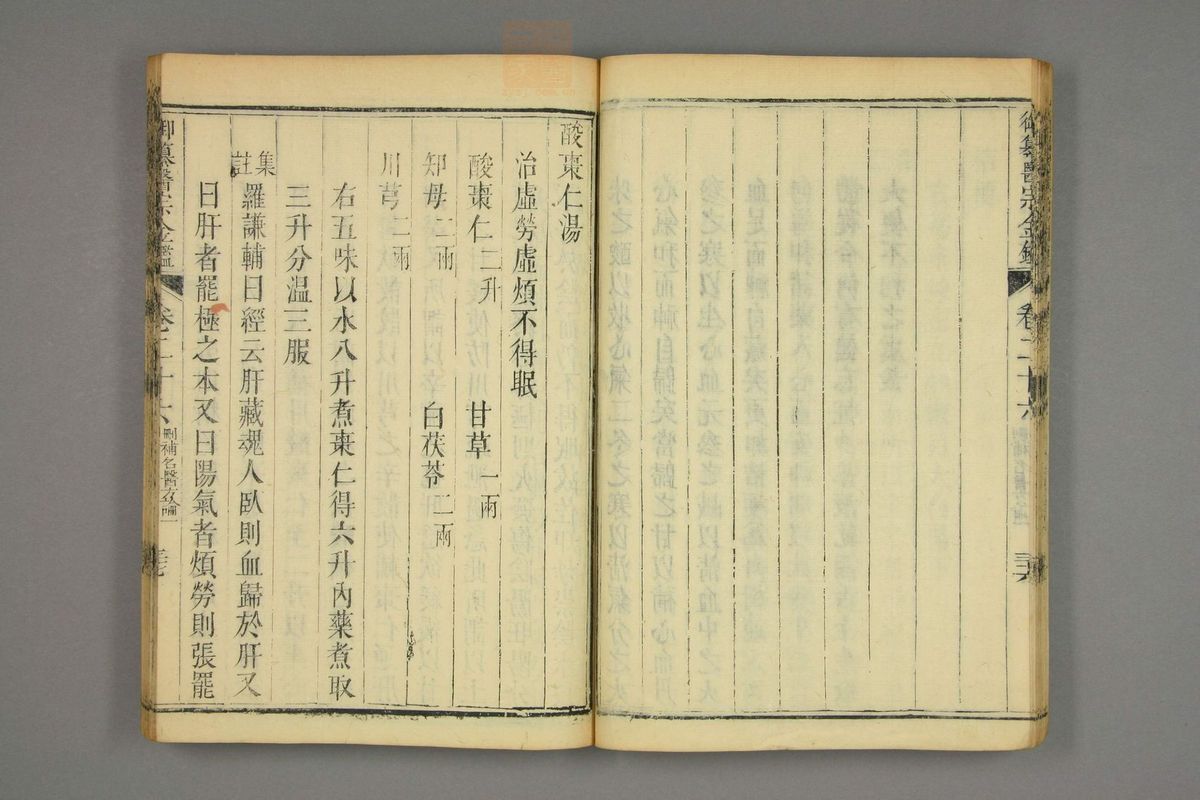 御纂醫宗金鑑 卷二十六
酸棗仁湯
治虛勞虛煩不得眠
酸棗仁二升 甘草一兩
知母二兩 白茯苓二兩
川芎二兩
右五味以水八升煮棗仁得六升內藥煮取
三升分溫三服
集註
羅謙輔曰經云肝藏魂人臥則血歸於肝又
曰肝者罷極之本又曰陽氣者煩勞則張罷
御纂醫宗金鑑 卷二十六 刪補名醫方論一